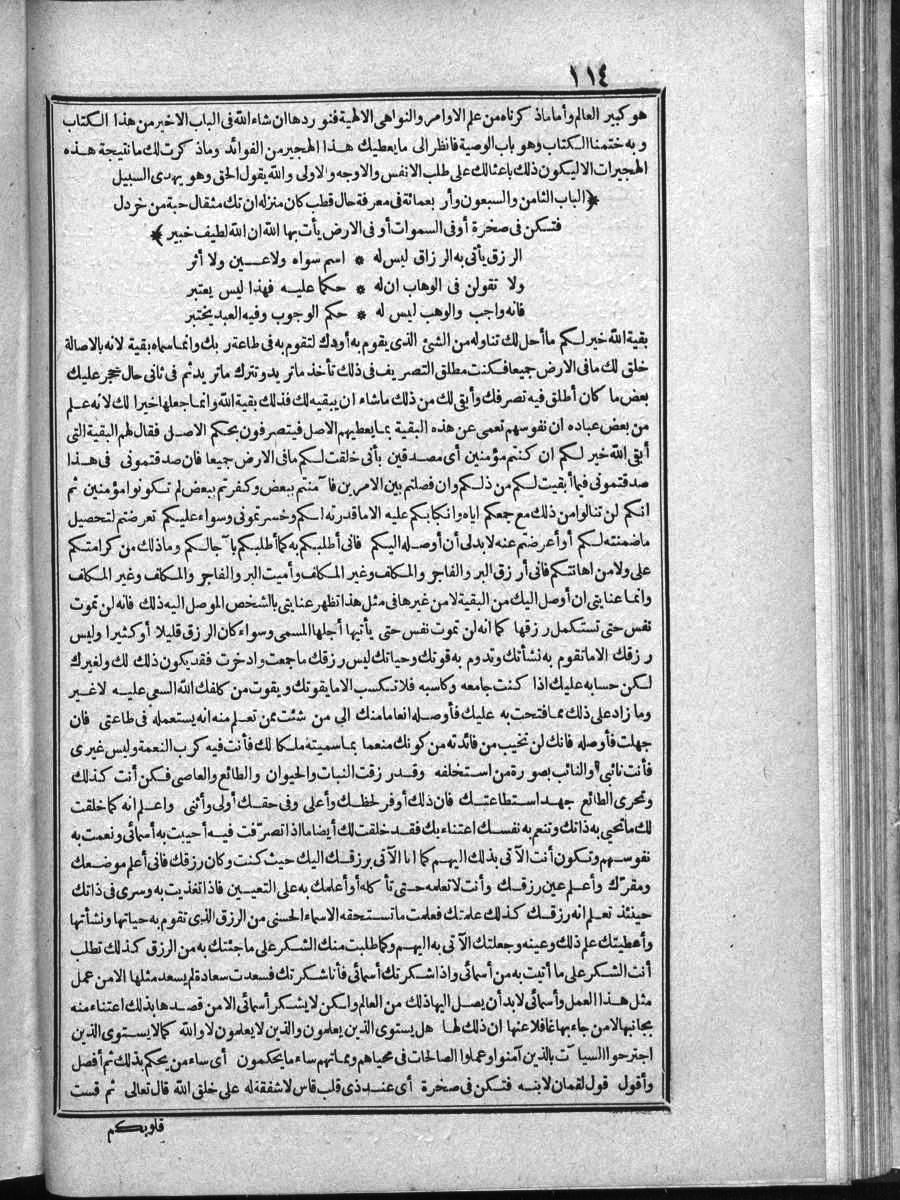 ١١٤
هو كبير العالم وأما ما ذكرناه من علم الاوامر والنواهى الالهية فنوردها ان شاء الله فى الباب الاخير من هذا الكتاب
وبه ختمنا الكتاب وهو باب الوصية فانظر الى ما يعطيك هذا الهجير من الفوائد وما ذكرت لك ما نتيجة هذه
الهجيرات الا ليكون ذلك باعثا لك على طلب الانفس والاوجه والاولى والله يقول الحق وهو يهدى السبيل
﴿الباب الثامن والسبعون وأربعمائة فى معرفة حال قطب كان منزله ان تك مثقال حبة من خردل
فتسكن فى صخرة أو فى السموات أو فى الارض يأت بها الله ان الله لطيف خبير﴾
الرزق يأتى به الرزاق ليس له * اسم سواه ولا عين ولا أثر
ولا تقولن فى الوهاب ان له * حكما عليه فهذا ليس يعتبر
فانه واجب والوهب ليس له * حكم الوجوب وفيه العبد يختبر
بقية الله خير لكم ما أحل لك تناوله من الشئ الذى يقوم به أودك لتقوم به فى طاعة ربك وانما سماه بقية لانه بالاصالة
خلق لك ما فى الارض جميعا فكنت مطلق التصريف فى ذلك تأخذ ما تريد وتترك ما تريد ثم فى ثانى حال حجر عليك
بعض ما كان أطلق فيه تصرفك وأبقى لك من ذلك ما شاء ان يبقيه لك فذلك بقية الله وانما جعلها خيرا لك لانه علم
من بعض عباده ان نفوسهم تعمى عن هذه البقية بما يعطيهم الاصل فيتصرفون بحكم الاصل فقال لهم البقية التى
أبقى الله خير لكم ان كنتم مؤمنين أى مصدقين بأنى خلقت لكم ما فى الارض جميعا فان صدقتمونى فى هذا
صدقتمونى فيما أبقيت لكم من ذلكم وان فصلتم بين الامرين فآمنتم ببعض وكفرتم ببعض لم تكونوا مؤمنين ثم
انكم لن تنالوا من ذلك مع جمعكم اياه وانكبابكم عليه الا ما قدرته لكم وخسرتمونى وسواء عليكم تعرضتم لتحصيل
ما ضمنته لكم أو أعرضتم عنه لا بد لى أن أوصله اليكم فانى أطلبكم به كما أطلبكم بآجالكم وما ذلك من كرامتكم
على ولا من اهانتكم فانى أرزق البر والفاجر والمكلف وغير المكلف وأميت البر والفاجر والمكلف وغير المكلف
وانما عنايتى ان أوصل اليك من البقية لا من غيرها فى مثل هذا تظهر عنايتى بالشخص الموصل اليه ذلك فانه لن تموت
نفس حتى تستكمل رزقها كما انه لن تموت نفس حتى يأتيها أجلها المسمى وسواء كان الرزق قليلا أو كثيرا وليس
رزقك الا ما تقوم به نشأتك وتدوم به قوتك وحياتك ليس رزقك ما جمعت وادخرت فقد يكون ذلك لك ولغيرك
لكن حسابه عليك اذا كنت جامعه وكاسبه فلا تكسب الا ما يقوتك ويقوت من كلفك الله السعى عليه لا غير
وما زاد على ذلك مما فتحت به عليك فأوصله انعاما منك الى من شئت ممن تعلم منه انه يستعمله فى طاعتى فان
جهلت فأوصله فانك لن تخيب من فائدته من كونك منعما بما سميته ملكا لك فأنت فيه كرب النعمة وليس غيرى
فأنت نائبى والنائب بصورة من استخلفه وقد رزقت النبات والحيوان والطائع والعاصى فكن أنت كذلك
وتحرى الطائع جهد استطاعتك فان ذلك أوفر لحظك وأعلى وفى حقك أولى وأثنى واعلم انه كما خلقت
لك ما تحيى به ذاتك وتنعم به نفسك اعتناء بك فقد خلقت لك أيضا ما اذا تصرفت فيه أحييت به أسمائى ونعمت به
نفوسهم وتكون أنت الآتى بذلك اليهم كما انا الآتى برزقك اليك حيث كنت وكان رزقك فانى أعلم موضعك
ومقرك وأعلم عين رزقك وأنت لا تعلمه حتى تأكله أو أعلمك به على التعيين فاذا تغذيت به وسرى فى ذاتك
حينئذ تعلم انه رزقك كذلك علمتك فعلمت ما تستحقه الاسماء الحسنى من الرزق الذى تقوم به حياتها ونشأتها
وأعطيتك علم ذلك وعينه وجعلتك الآتى به اليهم وكما طلبت منك الشكر على ما جئتك به من الرزق كذلك تطلب
أنت الشكر على ما أتيت به من أسمائى واذا شكرتك أسمائى فأنا شكرتك فسعدت سعادة لم يسعد مثلها الا من عمل
مثل هذا العمل وأسمائى لا بد أن يصل اليها ذلك من العالم ولكن لا يشكر أسمائى الا من قصدها بذلك اعتناء منه
بجانبها الا من جاء بها غافلا عنها ان ذلك لها هل يستوى الذين يعلمون والذين لا يعلمون لا والله كما لا يستوى الذين
اجترحوا السيآت بالذين آمنوا وعملوا الصالحات فى محياهم ومماتهم ساء ما يحكمون أى ساء من يحكم بذلك ثم أفصل
وأقول قول لقمان لابنه فتكن فى صخرة أى عند ذى قلب قاس لا شفقة له على خلق الله قال تعالى ثم قست
قلوبكم